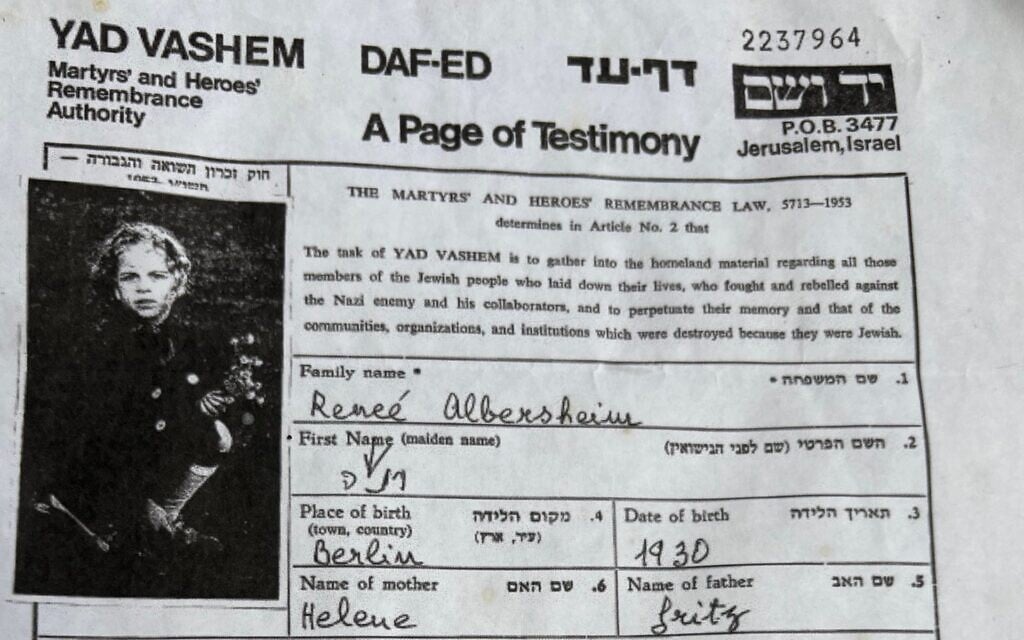 YAD VASHEM
Martyrs' and Heroes'
Remembrance
Authority
DAF-ED דף-עד
A Page of Testimony
2237964
יד ושם
P.O.B. 3477
Jerusalem, Israel
חוק זכרון השואה והגבורה —
THE MARTYRS' AND HEROES' REMEMBRANCE LAW, 5713—1953
determines in Article No. 2 that
The task of YAD VASHEM is to gather into the homeland material regarding all those
members of the Jewish people who laid down their lives, who fought and rebelled against
the Nazi enemy and his collaborators, and to perpetuate their memory and that of the
communities, organizations, and institutions which were destroyed because they were Jewish.
Family name * 1. שם המשפחה *
Reneé Albersheim
First Name (maiden name) 2. השם הפרטי (שם לפני הנישואין)
Place of birth 4. מקום הלידה
(town, country) (עיר, ארץ)
Berlin
Date of birth 3. תאריך הלידה
1930
Name of mother 6. שם האם
Helene
Name of father 5. שם האב
Fritz